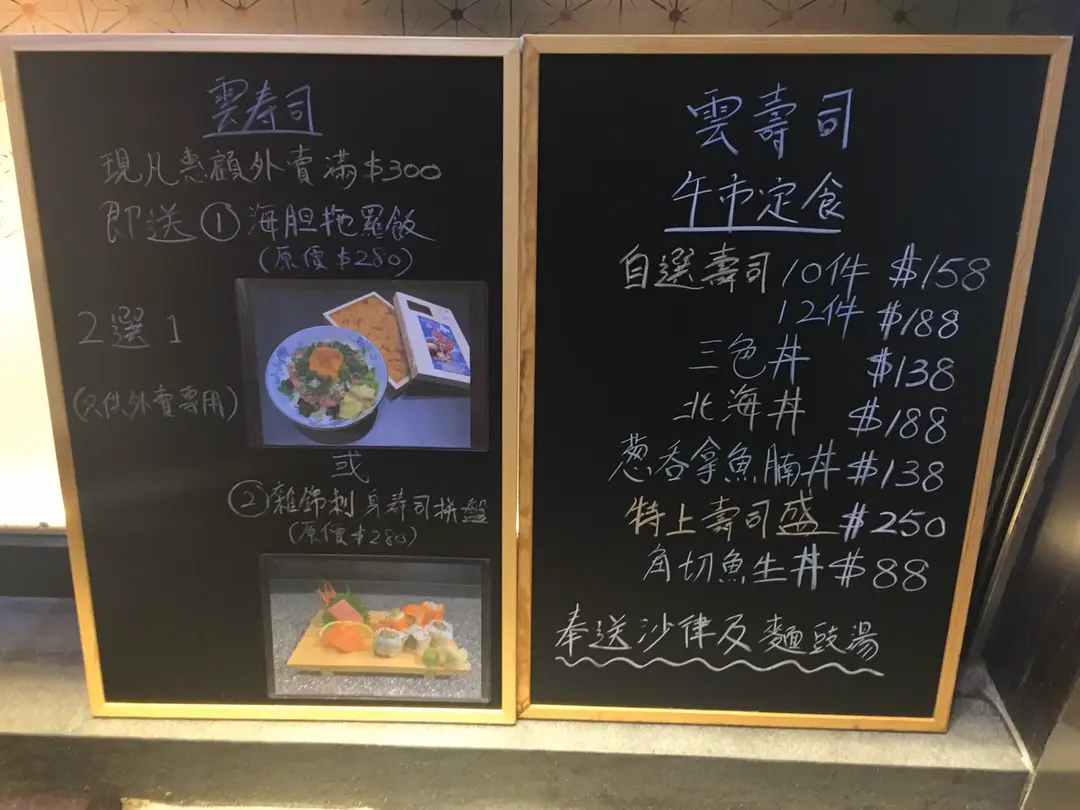 雲寿司
現凡惠顧外賣滿$300
即送①海胆拖羅飯
(原價$280)
2選1
(只供外賣專用)
或
②雜錦刺身寿司拼盤
(原價$280)
雲壽司
午市定食
自選壽司10件 $158
12件 $188
三色丼 $138
北海丼 $188
葱吞拿魚腩丼 $138
特上壽司盛 $250
角切魚生丼 $88
奉送沙律及麵豉湯